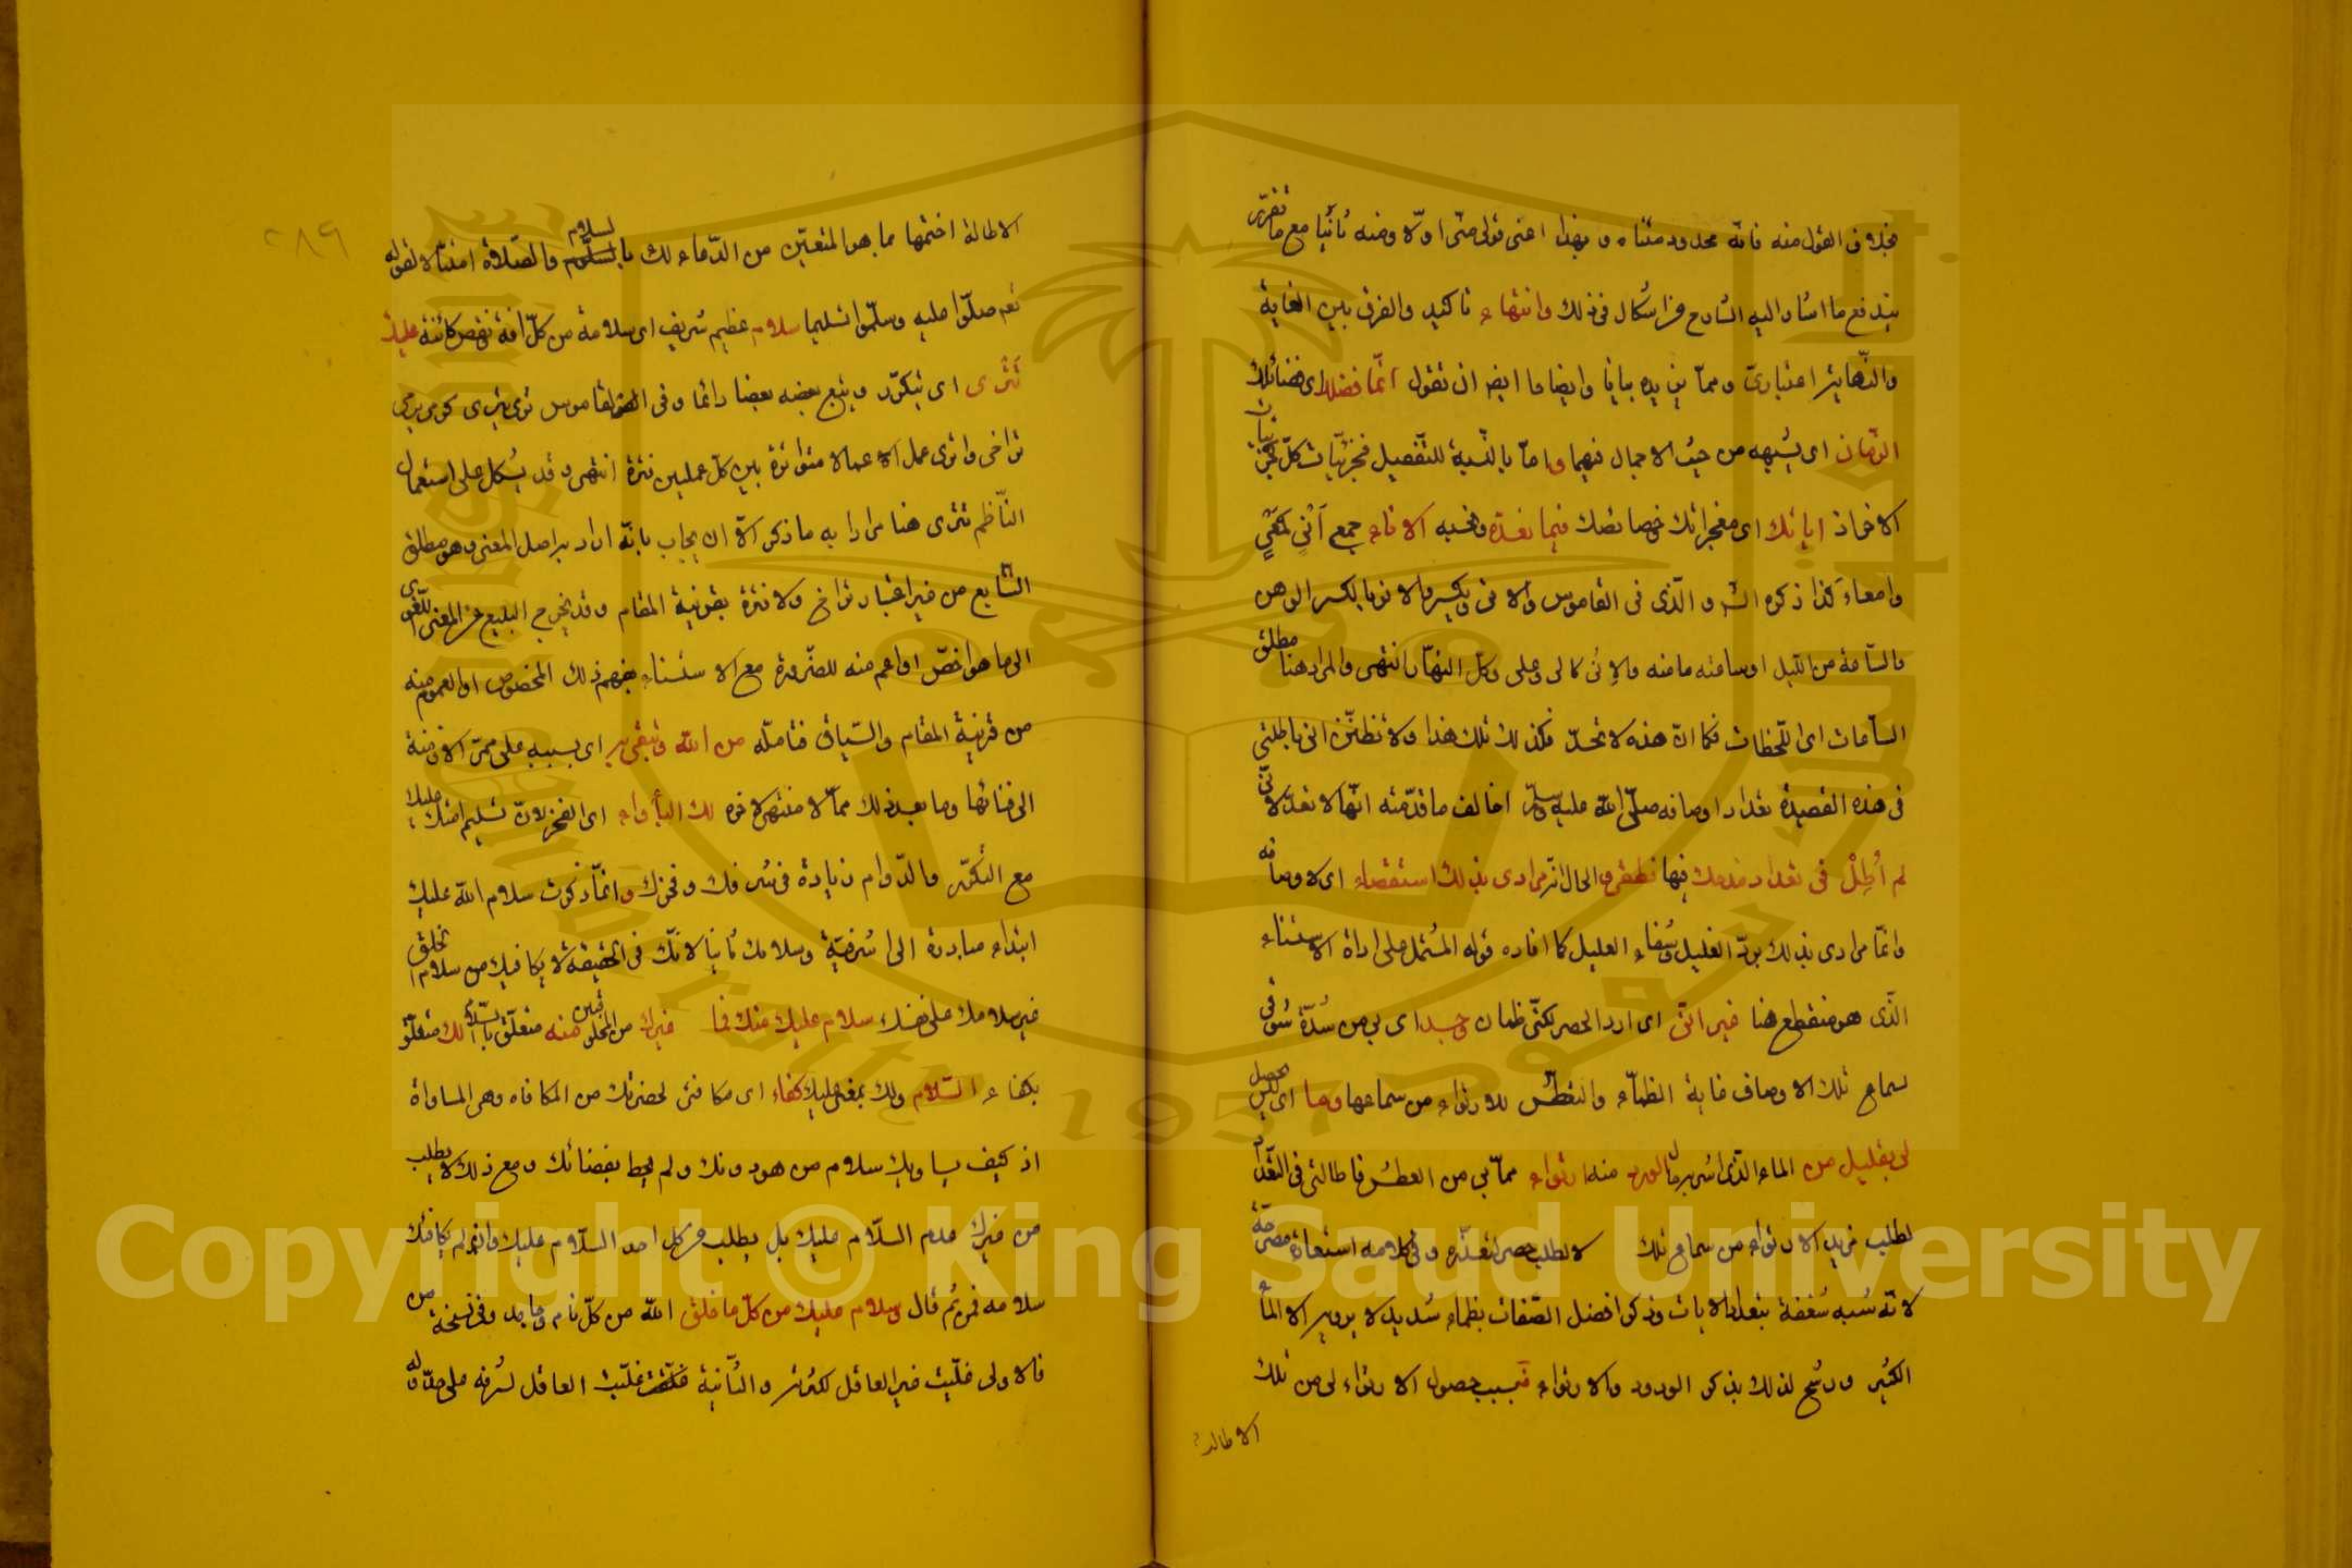 بخلاف القول منه فانّه محدود متناه وبهذا اعنى قولى متى اوّلا ومنه ثانيا مع ما تقرّر
يندفع ما اشار اليه الشارح من اشكال فى ذلك وانتهاء تاكيد والفرق بين الغاية
والنّهاية اعتبارىّ وممّا يزيده بيانا وايضاحا ايضا ان تقول انّما فضلك اى فضائلك
الزّمان اى يشبهه من حيث الاجمال فيهما وامّا بالنّسبة للتّفصيل فجزئيّات كلّ
الاخاذ اياتك اى معجزاتك خصائصك فيما نعدّه ونحسبه الاناء جمع اَنًى كمَعًى
وامعاء كذا ذكره الش والّذى فى القاموس والانى ويكسر والانو بالكسر الوهن
والسّاعة من اللّيل او ساعة ما منه والاِنى كالى وعلى وكلّ النهار انتهى والمراد هنا مطلق
السّاعات اى اللّحظات فكما انّ هذه لا تحدّ فكذلك تلك هذا ولا تظنّن انى باطالتى
فى هذه القصيدة تعداد اوصافه صلّى الله عليه وسلّم اخالف ما قدّمته انّها لا تعدّ لانّى
لم اُطِلْ فى تعداد مدحك فيها نطقى والحال انّ مرادى بذلك استقصاء اى لاوصافه
وانّما مرادى بذلك بردّ الغليل وشفاء العليل كما افاده قوله المشتمل على اداة الاستثناء
الّذى هو منقطع هنا غير انّى اى ارد الحصر لكنّى ظمان وجد اى بى من شدّة شوقى
لسماع تلك الاوصاف غاية الظماء والتعطّش للارتواء من سماعها وما اى ليس يحصل
لى بقليل من الماء الّذى اشربه مال الورد منه ارتواء ممّا بى من العطش فاطالتى فى التّعداد
لطلب مزيد الارتواء من سماع تلك لا لطلب حصر لتعذّره وفى كلامه استعارة مصرّحة
لانّه شبه شغفه بتعداد الايات وذكر افضل الصّفات بظماء شديد لا يرويه الا الماء
الكثير ورشح لذلك بذكر الورود والارتواء فبسبب حصول الارتواء لى من تلك
الاطالة
٢٨٩
الاطالة اختمها بما هو المتعيّن من الدّعاء لك بالسلام والصّلاة امتثالا لقوله
تعم صلّوا عليه وسلّموا تسليما سلام عظيم شريف اى سلامة من كلّ افة ونقص كائنة عليك
تترى اى يتكرّر ويتبع بعضه بعضا دائما وفى القاموس ترى يترى كرمى يرمى
تراخى واترى عمل الاعمالا متواترة بين كلّ عملين فترة انتهى وقد يشكل على استعمال
النّاظم تترى هنا مرادا به ما ذكر الّا ان يجاب بانّه اراد به اصل المعنى وهو مطلق
التتابع من غير اعتبار تراخ ولا فترة بقرينة المقام وقد يخرج البليغ عن المعنى اللّغوى
الى ما هو اخصّ او اعم منه للضّرورة مع الاستثناء بفهم ذلك الخصوص او العموم منه
من قرينة المقام والسّياق فتأمّله من الله وتبقى به اى بسببه على ممرّ الازمنة
الى فنائها وما بعد ذلك ممّا لا منتهى لاخره لك البأواء اى الفخر لانّ تسليم امّتك عليك
مع التّكرّر والدّوام زيادة فى شرفك وفخرك وانّما ذكرت سلام الله عليك
ابتداء مبادرة الى اشرفيّة وسلامك ثانيا لانّك فى الحقيقة لا يكافيك من سلام الخلق
غير سلامك على نفسك سلام عليك منك فما غيرك من المخلوقين منه متعلّق بالسّلام لك متعلّق
بكفاء السّلام ولك بمعنى عليك كفاء اى مكافئ لحضرتك من المكافاه وهى المساواة
اذ كيف يساويك سلام من هو دونك ولم يحط بفضائلك ومع ذلك لا يطلب
من غيرك عدم السّلام عليك بل يطلب من كل احد السّلام عليك وان لم يكافئك
سلامه فمن ثم قال وسلام عليك من كلّ ما خلق الله من كلّ نام وجامد وفى نسخة من
فالاولى غلّبت غير العاقل لكثرته والثّانية غلّبت العاقل لشرفه على حدّ قوله